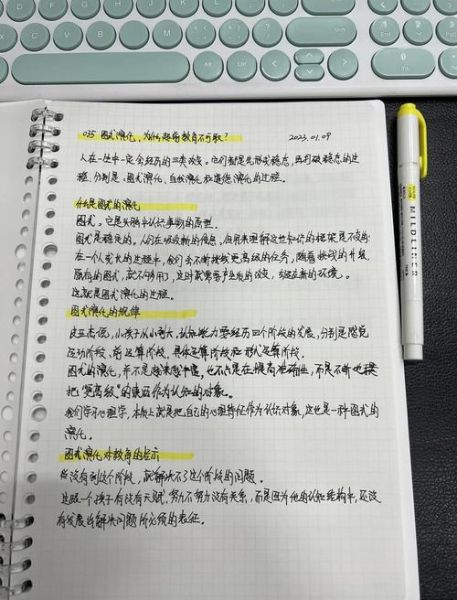 035 图式演化,为什么超前教育不可取? 2023.01.09
人在一生中一定会经历的三类改变。它们都是先形成稳态,再打破稳态的过
程,分别是:图式演化、自我演化和道德演化的过程。
什么是图式的演化
图式。它是头脑中认识事物的原型。
图式是稳定的。人们在吸收新的信息,但用来理解这些知识的框架是不变的
在一个人成长的过程中,我们会不断接收更高级的任务,随着挑战的升级
原有的图式,就不够用了,这时就需要产生质的改变,去适应新的环境。
这就是图式演化的过程。
图式演化的规律
皮亚杰说,小孩子从小到大,认知能力要经历四个阶段的发展,分别是感觉
运动阶段,前运算阶段,具体运算阶段和形式运算阶段。
图式的演化,并不是越来越丰富,也不只是在提高准确性,而是不断地接
把"更高级"的东西作为认知的对象。
我们学习心理学,本质上就是把自己的心理特征作为认识对象,这也是一种图式的
演化。
图式演化对教育的启示
你没有到这个阶段,就解决不了这个阶段的问题。
这跟一个孩子有没有天赋,努力不努力没有关系,而是因为他的认知结构中,还没
有发展出解决问题所必须的表征。
MILDLINER